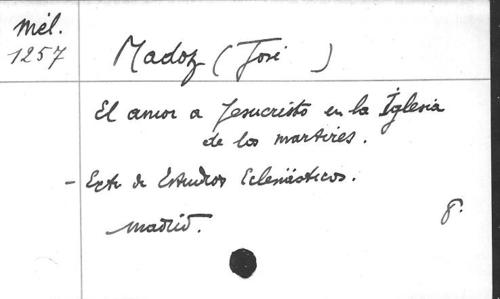 Mél.
1257
Madoz (José )
El amor a Jesucristo en la Iglesia
de los martires.
- Extr de Estudios Eclesiásticos.
Madrid.
8.